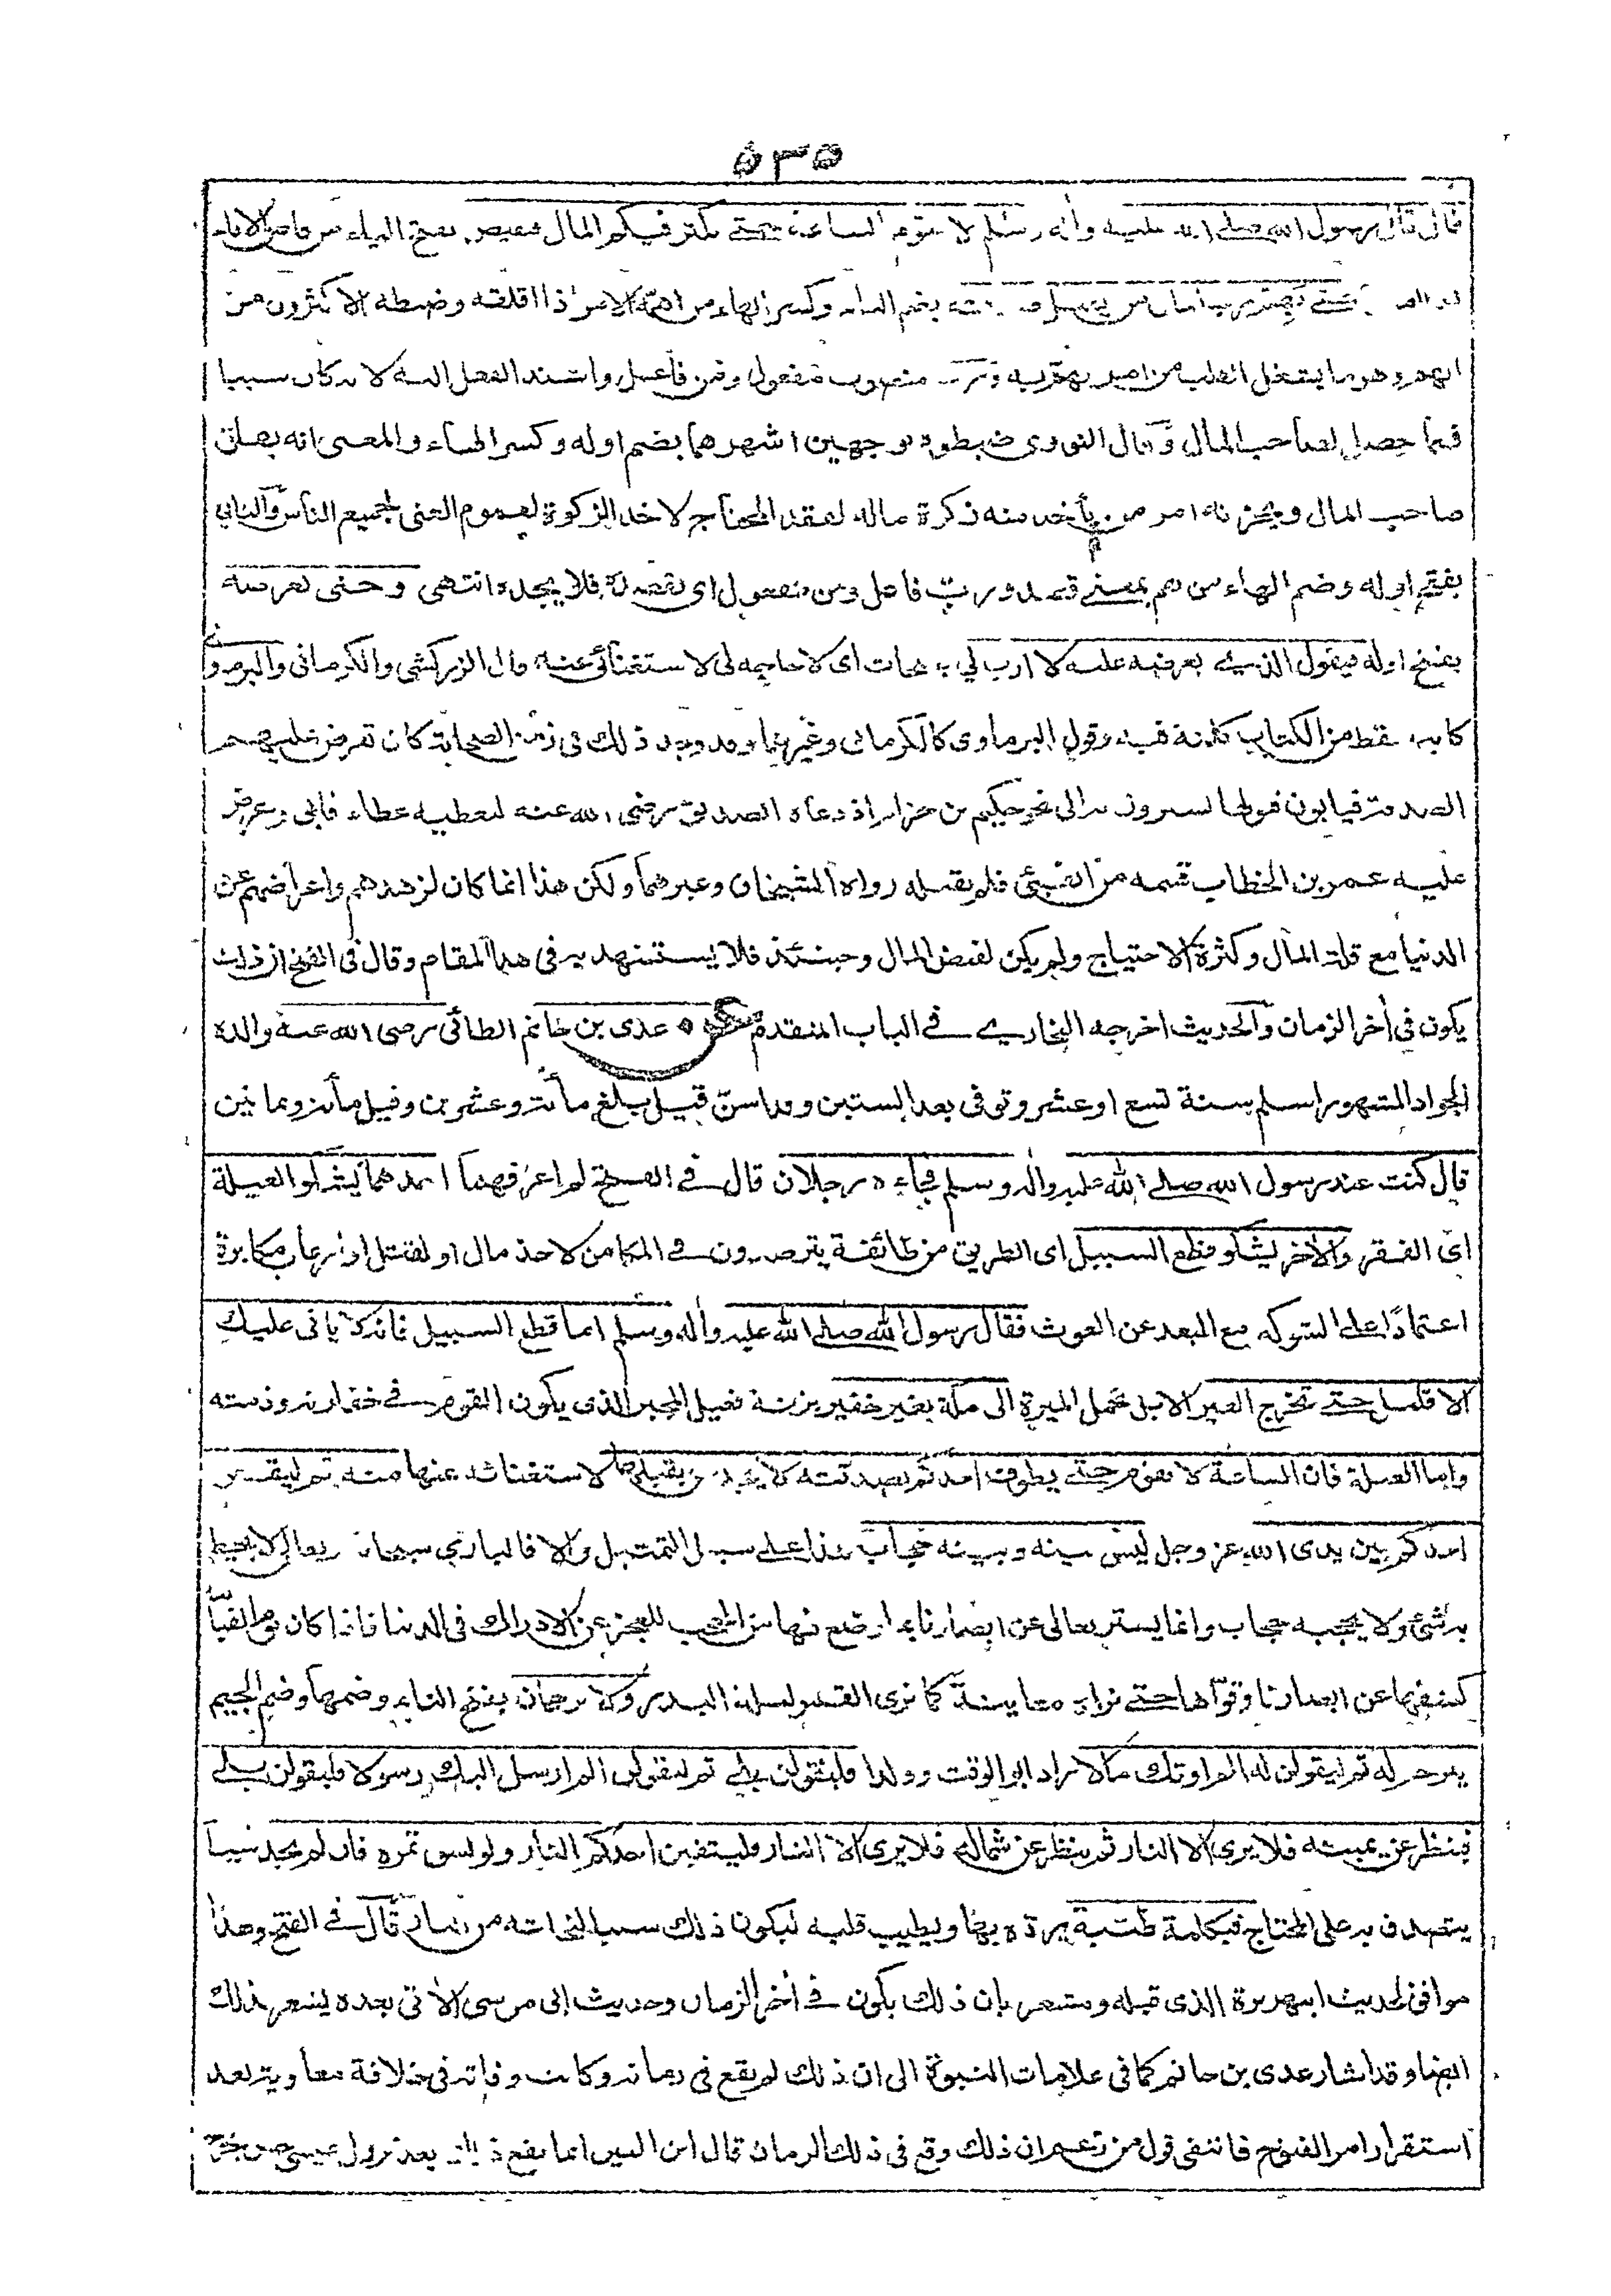 ٥٣٥
قال قال رسول الله صلى الله عليه وآله وسلم لا تقوم الساعة حتى يكثر فيكم المال فيفيض بفتح الياء من فاض الاناء
حتى يهم رب المال من يقبل صدقته بضم الياء وكسر الهاء من اهمّه الامر اذا اقلقه وضبطه الاكثرون من
الهم وهو ما يشغل القلب من امر يهم به ورب منصوب مفعول ومن فاعل واسند الفعل اليه لانه كان سببا
فيما حصل لصاحب المال وقال النووى ضبطوه بوجهين اشهرهما بضم اوله وكسر الهاء والمعنى انه يقلق
صاحب المال ويحزنه امر من يأخذ منه زكوة ماله لفقد المحتاج لاخذ الزكوة لعموم الغنى لجميع الناس والثانى
بفتح اوله وضم الهاء من هم بمعنى قصد ورب فاعل ومن مفعول اى يقصده فلا يجده انتهى وحتى يعرضه
بفتح اوله فيقول الذى يعرضه عليه لا ارب لي بفتحات اى لا حاجة لى لاستغنائى عنه قال الزركشى والكرمانى والبرماوى
كانه سقط من الكتاب كلمة فيه وقول البرماوى كالكرمانى وغيرهما وقد وجد ذلك فى زمن الصحابة كان تعرض عليهم
الصدقة فيأبون قبولها يشيرون به الى نحو حكيم بن حزام اذ دعاه الصديق رضى الله عنه ليعطيه عطاء فابى وعرض
عليه عمر بن الخطاب قسمه من الفيئ فلم يقبله رواه الشيخان وغيرهما ولكن هذا انما كان لزهدهم واعراضهم عن
الدنيا مع قلة المال وكثرة الاحتياج ولم يكن لفيض المال وحينئذ فلا يستشهد به فى هذا المقام وقال فى الفتح ان ذلك
يكون فى آخر الزمان والحديث اخرجه البخاري في الباب المتقدم عن عدى بن حاتم الطائى رضى الله عنه والده
الجواد المشهور اسلم سنة تسع او عشر وتوفى بعد الستين وقد اسنّ قيل بلغ مائة وعشرين وقيل مائة وثمانين
قال كنت عند رسول الله صلى الله عليه وآله وسلم فجاءه رجلان قال في الفتح لم اعرفهما احدهما يشكو العيلة
اى الفقر والآخر يشكو قطع السبيل اى الطريق من طائفة يترصدون في المكامن لاخذ مال او لقتل او ارعاب مكابرة
اعتمادا على الشوكة مع البعد عن الغوث فقال رسول الله صلى الله عليه وآله وسلم اما قطع السبيل فانه لا يأتى عليك
الا قليل حتى تخرج العير الابل تحمل الميرة الى مكة بغير خفير بزنة فعيل المجير الذى يكون القوم في خفارته وذمته
واما العيلة فان الساعة لا تقوم حتى يطوف احدكم بصدقته لا يجد من يقبلها لاستغنائه عنها منه ثم ليقفن
احدكم بين يدى الله عز وجل ليس بينه وبينه حجاب هذا على سبيل التمثيل والا فالباري سبحانه وتعالى لا يحيط
به شئ ولا يحجبه حجاب وانما يستر تعالى عن ابصارنا بما وضع فيها من الحجب للعجز عن الادراك فى الدنيا فاذا كان يوم القيامة
كشفها عن ابصارنا وقوّاها حتى نراه معاينة كما نرى القمر ليلة البدر ولا ترجمان بفتح التاء وضمها وضم الجيم
يترجم له ثم ليقولن له الم اوتك مالا زاد ابو الوقت وولدا فليقولن بلى ثم ليقولن الم ارسل اليك رسولا فليقولن بلى
فينظر عن يمينه فلا يرى الا النار ثم ينظر عن شماله فلا يرى الا النار فليتقين احدكم النار ولو بشق تمرة فان لم يجد شيأ
يتصدق به على المحتاج فبكلمة طيبة يرده بها ويطيب قلبه ليكون ذلك سببا لنجاته من النار قال في الفتح وهذا
موافق لحديث ابى هريرة الذى قبله ومشعر بان ذلك يكون في آخر الزمان وحديث ابى موسى الآتى بعده يشعر بذلك
ايضا وقد اشار عدى بن حاتم كما فى علامات النبوة الى ان ذلك لم يقع فى زمانه وكانت وفاته فى خلافة معاوية بعد
استقرار امر الفتوح فانتفى قول من زعم ان ذلك وقع فى ذلك الزمان قال ابن التين انما يقع ذلك بعد نزول عيسى حين تخرج